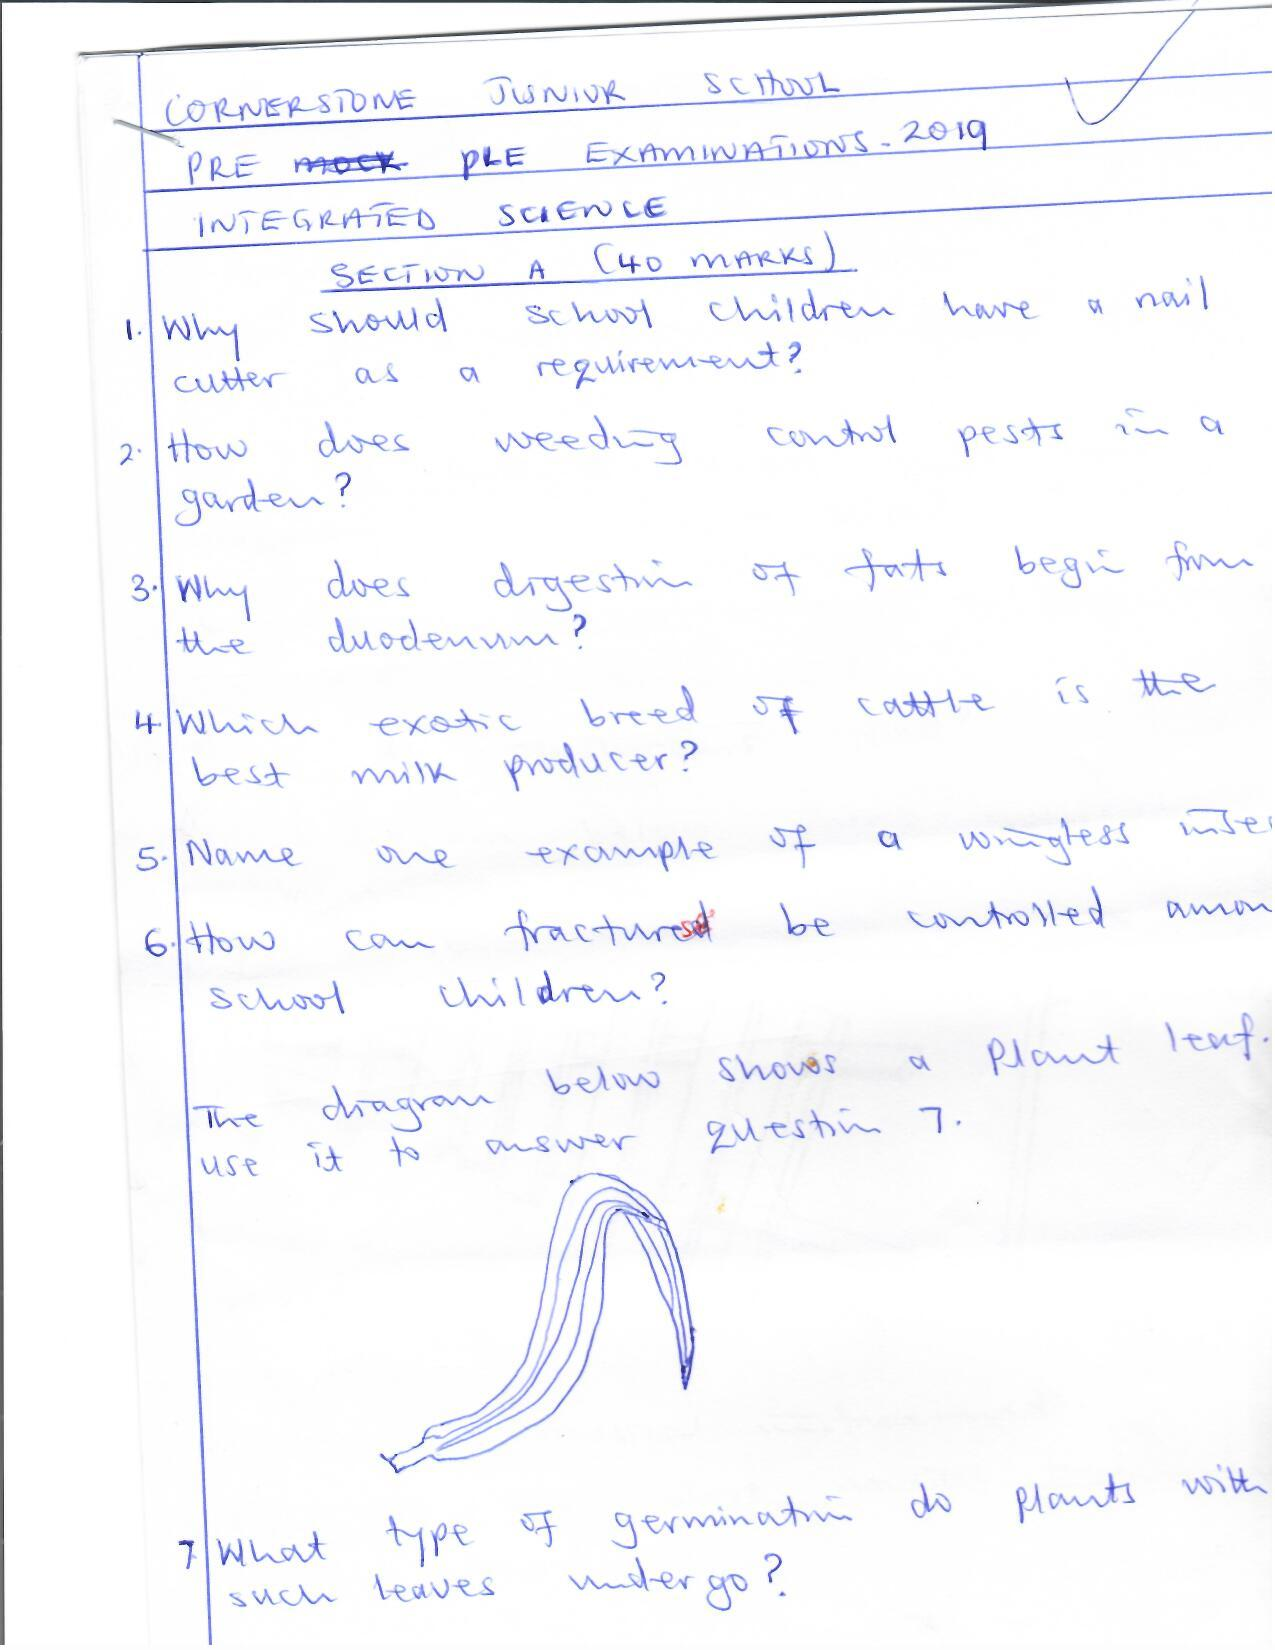 CORNERSTONE JUNIOR SCHOOL
PRE mock PLE EXAMINATIONS - 2019
INTEGRATED SCIENCE
SECTION A (40 MARKS)
1. Why should school children have a nail
cutter as a requirement?
2. How does weeding control pests in a
garden?
3. Why does digestion of fats begin from
the duodenum?
4. Which exotic breed of cattle is the
best milk producer?
5. Name one example of a wingless inse
6. How can fractures be controlled amon
school children?
The diagram below shows a plant leaf.
use it to answer question 7.
7 What type of germination do plants with
such leaves undergo?